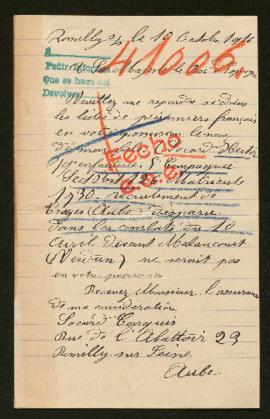 Romilly s/s le 19 Octobre 1916
41006.
A Sa Majesté le Roi
Pedir informes
Que se haga así
Devolver
Veuillez me répondre si dans
les listes de prisonniers français
en votre possession le nom
de mon Socard
d'infanterie 5e Compagnie
Matricule
1730 recrutement de
Troyes (Aube) disparu
dans les combats du 10
Avril devant Malancourt
(Verdun) ne serait pas
en votre possession
Fecho
Recevez Monsieur l'assurance
de ma considération
Socard
Rue de l'Abattoir 23
Romilly sur Seine
Aube